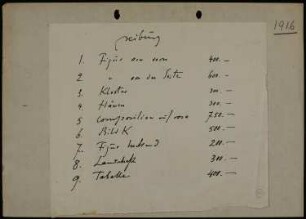 1916
1. Figur von vorn 400.—
2 " von der Seite 600.—
3. Kloster 300.—
4 Häuser 300.—
5 Composition auf rosa 750.—
6. Bild K 500.—
7. Figur 200.—
8. Landschaft 300.—
9. 400.—